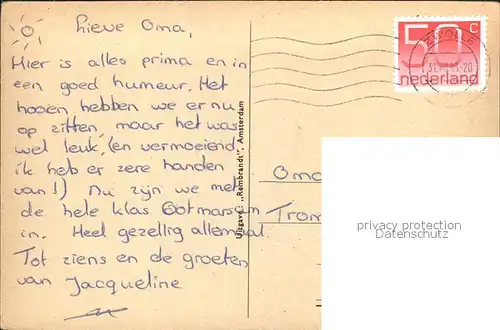 Lieve Oma,
Hier is alles prima en in
een goed humeur. Het
hooien hebben we er nu
op zitten, maar het was
wel leuk, (en vermoeiend,
ik heb er zere handen
van!) Nu zijn we met
de hele klas Ootmarsum
in. Heel gezellig allemaal
Tot ziens en de groeten
van Jacqueline
Uitgave: „Rembrandt”, Amsterdam
50 c
nederland
ZWOLLE
Oma
Trom
privacy protection
Datenschutz